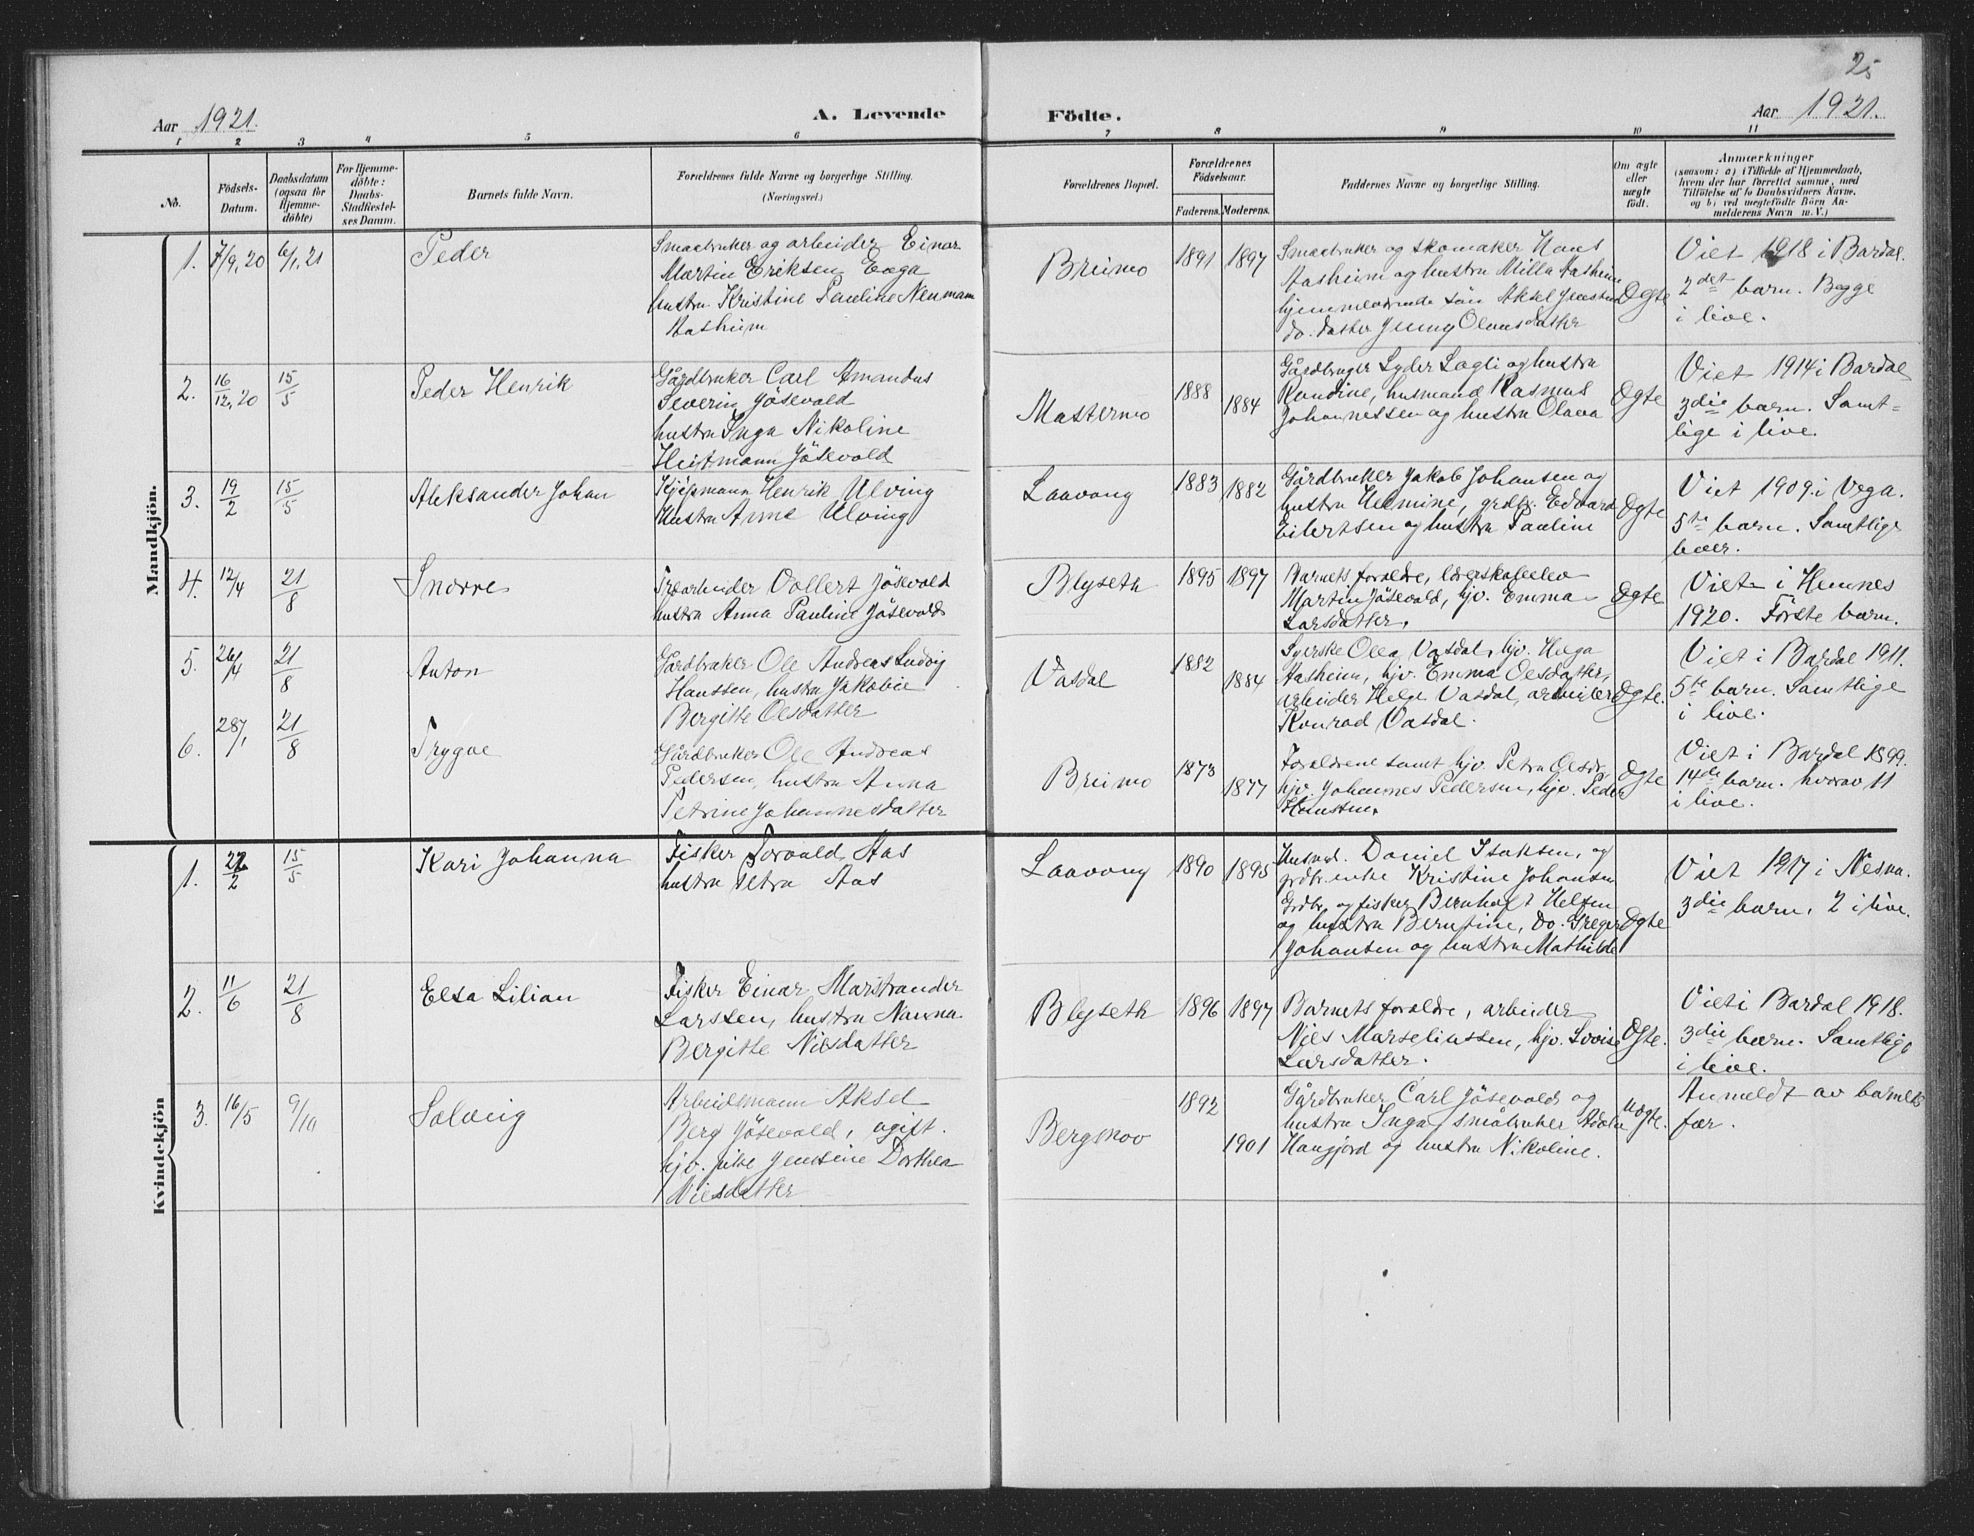 25
Aar 1921.
A. Levende
Födte.
Aar 1921.
1 2 3 4 5 6 7 8 9 10 11
No.
Födsels-
Datum.
Daabsdatum
(ogsaa for
Hjemme-
döbte)
For Hjemme-
döbte:
Daabs-
Stadfæstel-
ses Datum.
Barnets fulde Navn.
Forældrenes fulde Navne og borgerlige Stilling.
(Næringsvei.)
Forældrenes Bopæl.
Forældrenes
Födselsaar.
Faderens. Moderens.
Faddernes Navne og borgerlige Stilling.
Om ægte
eller
uægte
födt.
Anmærkninger
(saasom: a) i Tilfælde af Hjemmedaab,
hvem der har forrettet samme, med
Tilföielse af to Daabsvidners Navne,
og b) ved uegtefödte Börn An-
melderens Navn m. V.)
Mandkjön.
1. 7/9, 20 6/1, 21 Peder
Smaabruker og arbeider Einar
Martin Eriksen Enga
hustru Kristine Pauline Neumann
Aasheim
Breimo 1891 1897
Smaabruker og skomaker Hans
Aasheim og hustru Milla Aasheim
hjemmeværende sön Aksel
do. datter Jenny Olausdatter
Ægte
Viet 1918 i Bardal.
2det barn. Begge
i live.
2. 16/12, 20 15/5 Peder Henrik
Gårdbruker Carl Amandus
Severin Jösevold
hustru Inga Nikoline
Heitmann Jösevold
Mastermo 1888 1884
Gårdbruger Lyder Sagli og hustru
Randine, husmand Rasmus
Johannessen og hustru Olava
Ægte
Viet 1914 i Bardal
3die barn. Samt=
lige i live.
3. 19/2 15/5 Aleksander Johan
Kjöpmann Henrik Ulving
Hustru Anna Ulving
Laavong 1883 1882
Gårdbruker Jakob Johansen og
hustru Helmine, grdbr. Edvard
Eilertsen og hustru Pauline
Ægte
Viet 1909 i Vega.
5te barn. Samtlige
lever.
4. 12/4 21/8 Snorre
Træarbeider Vollert Jösevold
hustru Anna Pauline Jösevold
Blyseth 1895 1897
Barnets foreldre, lærerskoleelev
Martin Jösevold, hjv. Emma
Larsdatter.
Ægte
Viet i Hemnes
1920. Förste barn.
5. 26/4 21/8 Anton
Gårdbruker Ole Andreas Ludvig
Hanssen, hustru Jakobie
Bergitte Olsdatter
Vasdal 1882 1884
Syerske Olea Vasdal, hjv. Helga
Aasheim, hjv. Emma Olsdatter,
arbeider Helge Vasdal, arbeider
Konrad Vasdal.
Ægte.
Viet i Bardal 1911.
5te barn. Samtlige
i live.
6. 28/1 21/8 Trygve
Gårdbruker Ole Andreas
Pedersen, hustru Anna
Petrine Johannesdatter
Breimo 1873 1877
Foreldrene samt hjv. Petra Olsdr,
hjv. Johannes Pedersen, hjv. Peder
Hansten.
Ægte
Viet i Bardal 1899.
14de barn. hvorav 11
i live.
Kvindekjön
1. 22/2 15/5 Kari Johanna
Fisker Torvald Aas
hustru Petra Aas
Laavong 1890 1895
Husmd. Daniel Isaksen, og
grdbr.enke Kristine Johansen
Grdbr. og fisker Bernhoft Helfen
og hustru Berntine, do. Greger
Johansen og hustru Mathilde
Ægte
Viet 1917 i Nesna.
3die barn, 2 i live.
2. 11/6 21/8 Elsa Lilian
Fisker Einar Marstrander
Larssen, hustru Nanna
Bergitte Nilsdatter
Blyseth 1896 1897
Barnets foreldre, arbeider
Nils Marseliussen, hjv. Lovise
Larsdatter.
Ægte.
Viet i Bardal 1918.
3die barn. Samtlige
i live.
3. 16/5 9/10 Solveig
Arbeidsmann Aksel
Berg Jösevold, ugift.
hjv. pike Jensine Dorthea
Nilsdatter
Bergskov 1892 1901
Gårdbruker Carl Jösevold og
hustru Inga, småbruker
Haugjord og hustru Nikoline.
Uægte.
Anmeldt av barnets
far.